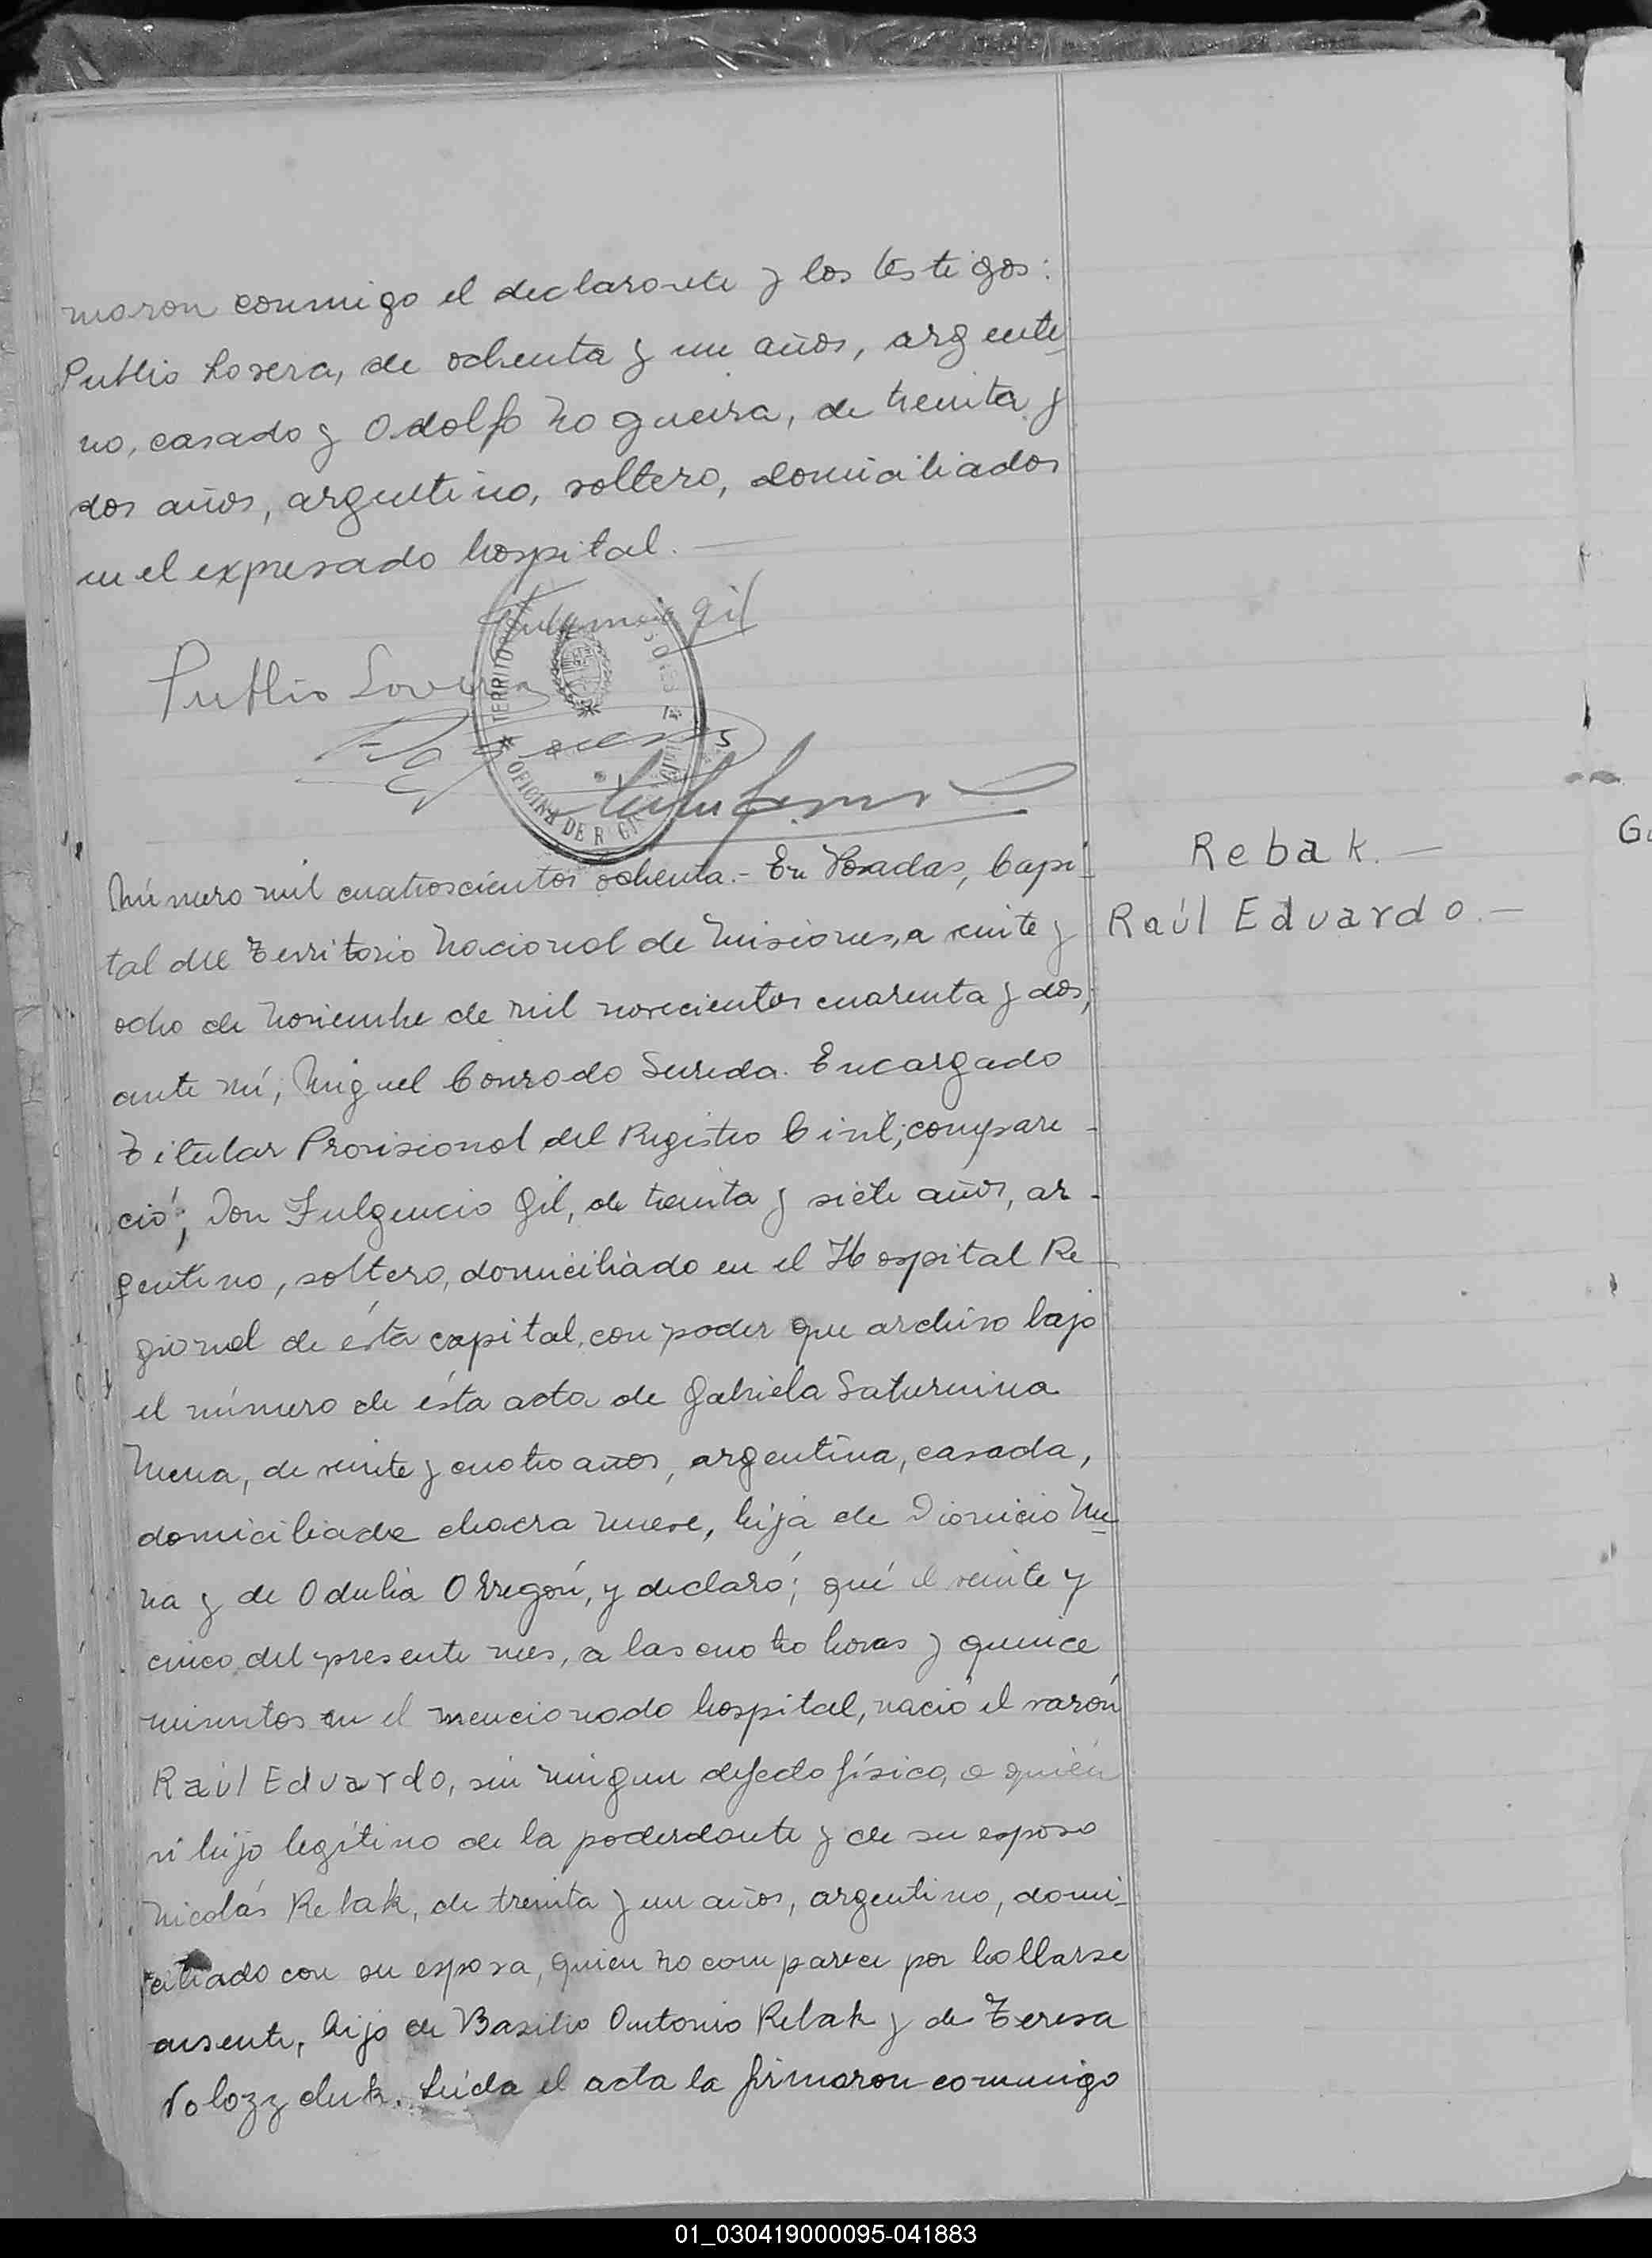 maron conmigo el declarante y los testigos:
Publio Lovera, de ochenta y un años, argenti_
no, casado y Odolfo Nogueira, de treinta y
dos años, argentino, soltero, domiciliados
en el expresado hospital. —
Fulgencio Gil
Publio Lovera
TERRITORIO
OFICINA DE R
Número mil cuatroscientos ochenta.- En Posadas, Capi_
tal del Territorio Nacional de Misiones, a veinte y
ocho de Noviembre de mil novecientos cuarenta y dos,
ante mí, Miguel Conrado Sureda. Encargado
Titular Provisional del Registro Civil; compare -
ció; Don Fulgencio Gil, de treinta y siete años, ar -
gentino, soltero, domiciliado en el Hospital Re_
gional de ésta capital, con poder que archivo bajo
el número de ésta acta de Gabriela Saturnina
Mena, de veinte y cuatro años, argentina, casada,
domiciliada chacra nueve, hija de Dionicio Me_
na y de Odulia Obregón, y declaró; qué el veinte y
cinco del presente mes, a las cuatro horas y quince
minutos en el mencionado hospital, nació el varón
Raúl Eduardo, sin ningun defecto físico, a quién
ví hijo legítimo de la poderdante y de su esposo
Nicolás Rebak, de treinta y un años, argentino, domi_
ciliado con su esposa, quien no comparece por hallarse
ausente, hijo de Basilio Antonio Rebak y de Teresa
Leída el acta la firmaron conmigo
Rebak. —
Raúl Eduardo. —
01_030419000095-041883